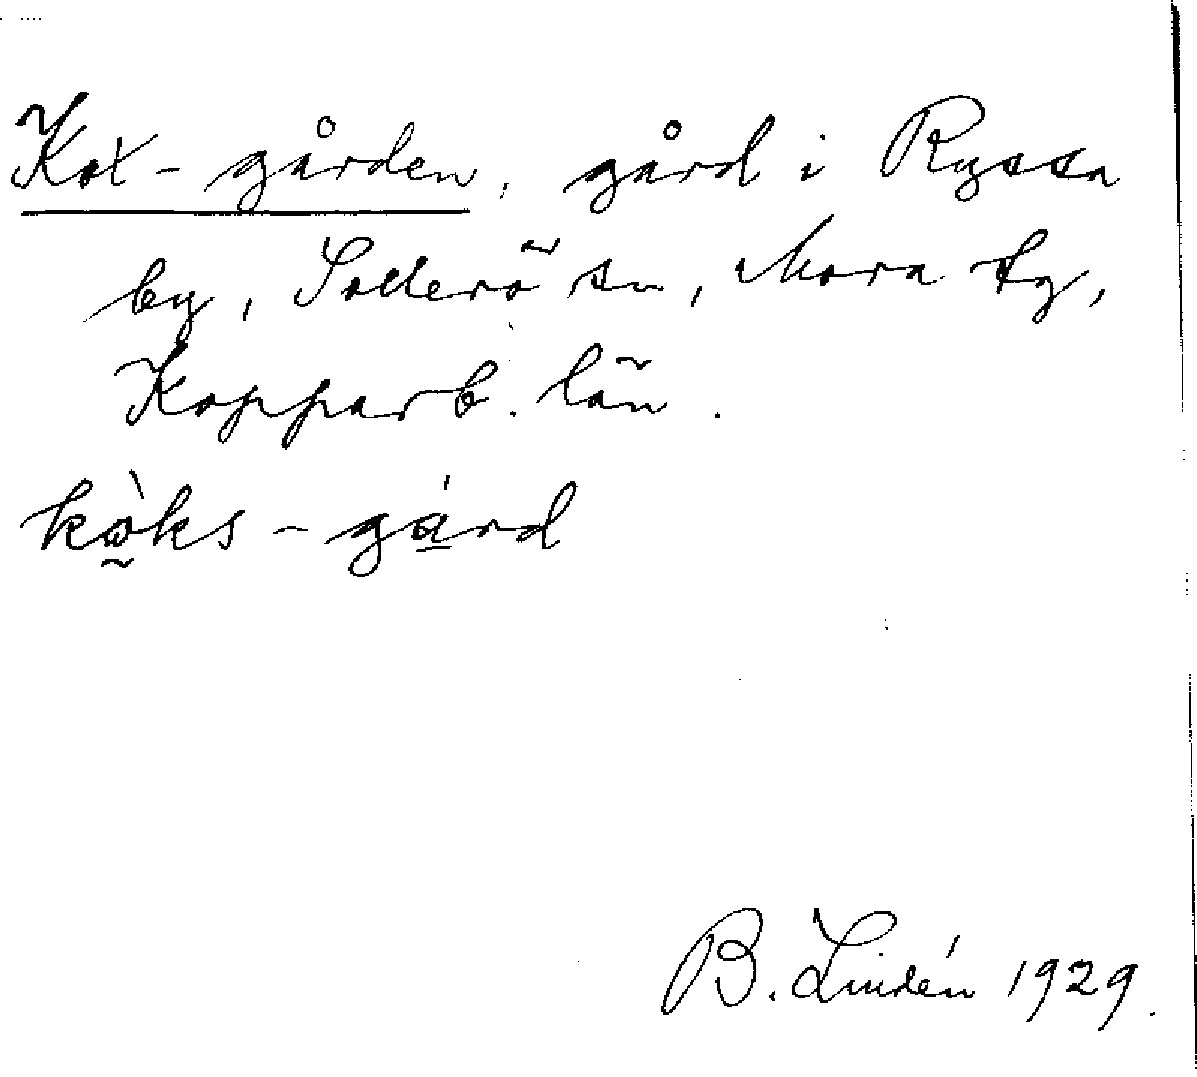 Kox-gården, gård i Ryssa
by, Sollerö sn, Mora tg,
Kopparb. län.
kö̀ks-gá̱rd
B. Lindén 1929.